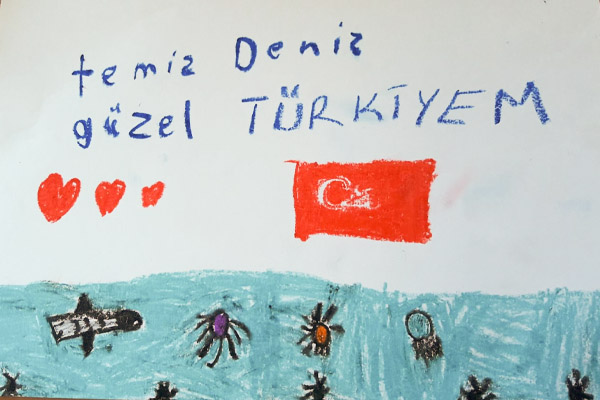 temiz Deniz
güzel TÜRKİYEM